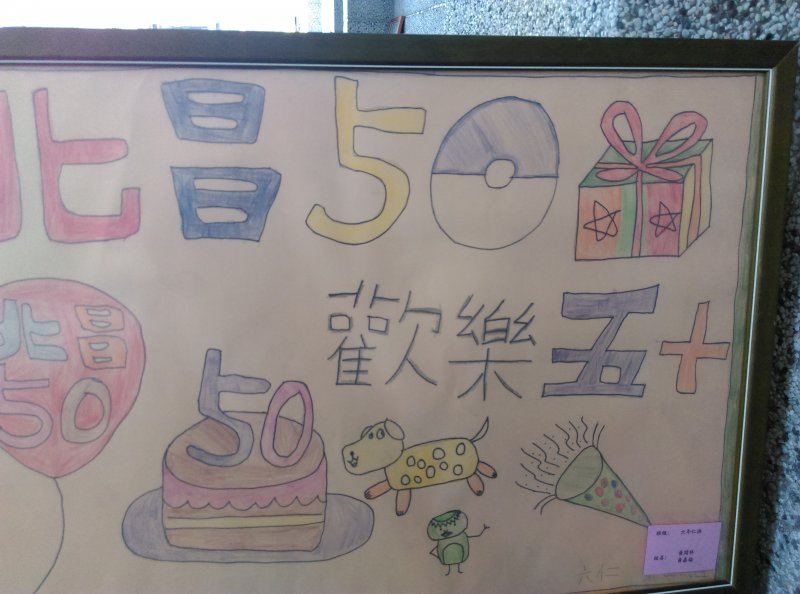 北昌50
歡樂五十
北昌
50
50
六仁
班級： 六年仁班
姓名：